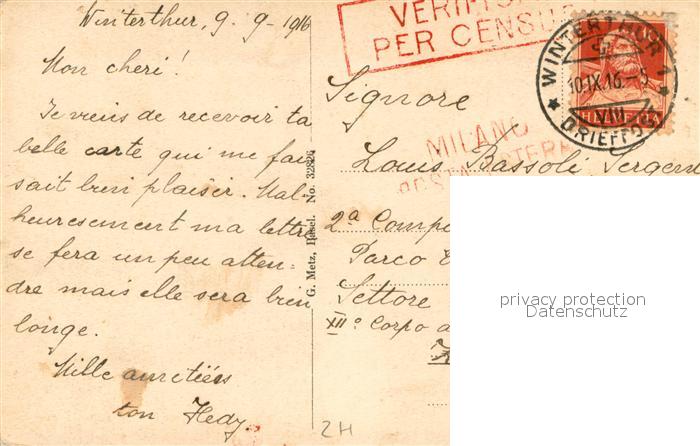 Winterthur, 9. 9 - 1916
Mon cheri!
Je viens de recevoir ta
belle carte qui me fai
sait bien plaisir. Mal-
heuresement ma lettre
se fera un peu atten-
dre mais elle sera bien
longe.
Mille
ton Hedy.
G. Metz, Basel. No. 32826
VERIF
PER CENSU
MILANO
POSTA ESTER
WINTERTHUR 1
10.IX.16.-5
VIII
BRIEFPOST
Signore
Louis Bassoli Sergen
2ª Comp
Parco
Settore
XIIº Corpo d
2H
privacy protection
Datenschutz